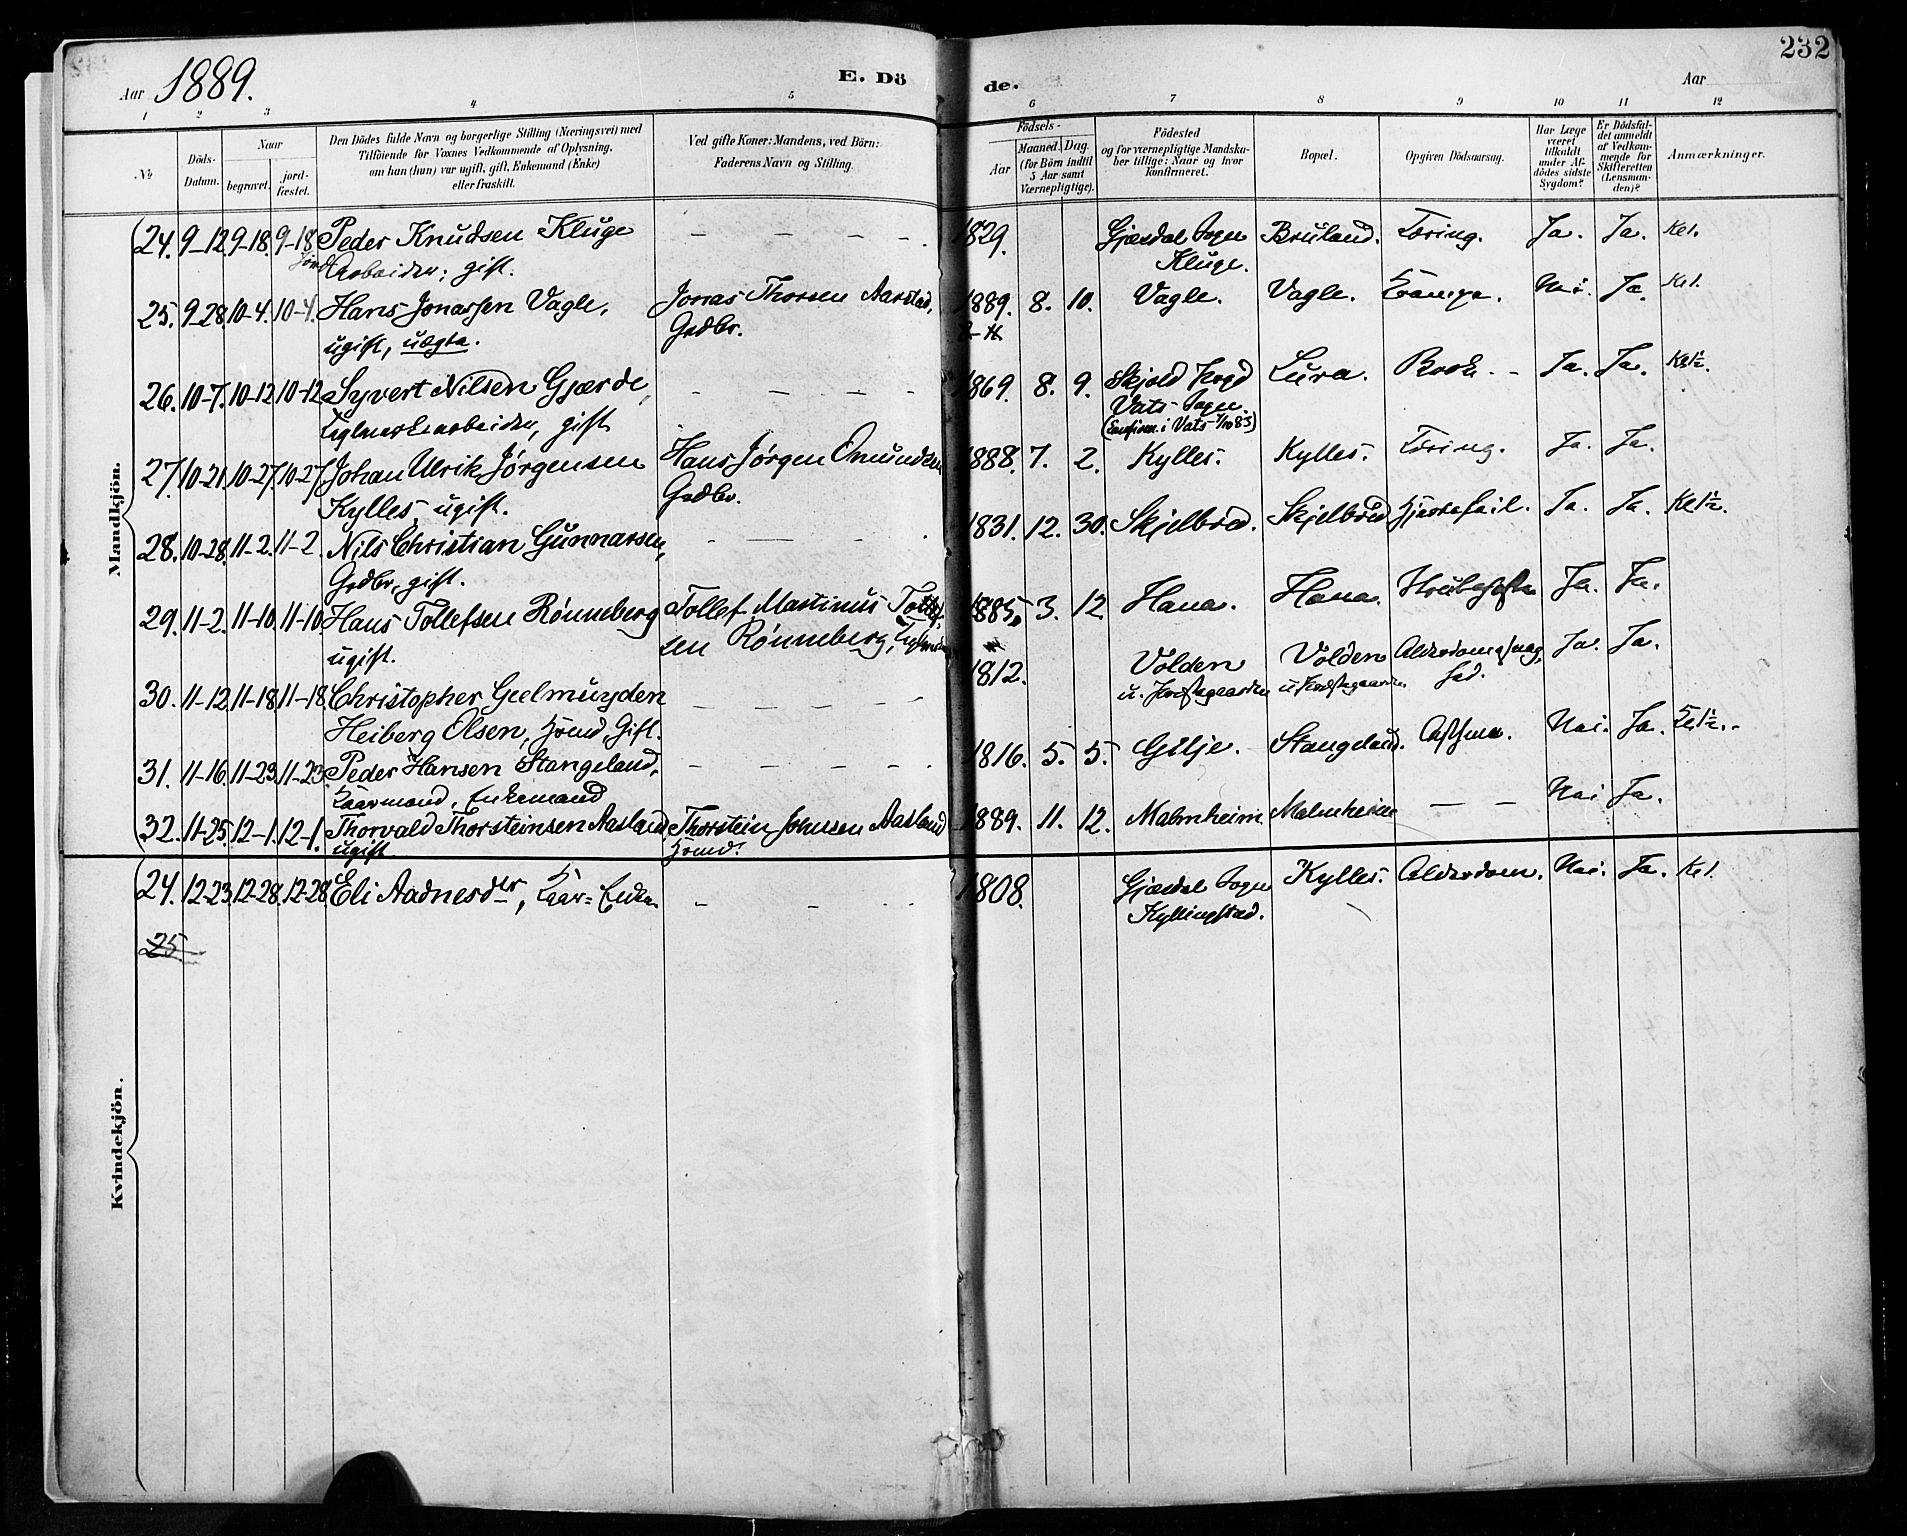 232
Aar 1889.
E. Dö de.
Aar
1 2 3 4 5 6 7 8 9 10 11 12
No
Döds-Datum.
Naar
begravet.
jord-fæstet.
Den Dödes fulde Navn og borgerlige Stilling (Næringsvei) med
Tilföiende for Voxnes Vedkommende af Oplysning,
om han (hun) var ugift, gift, Enkemand (Enke)
eller fraskilt.
Ved gifte Koner: Mandens, ved Börn:
Faderens Navn og Stilling.
Födsels-
Aar
Maaned. Dag.
(for Börn indtil
5 Aar samt
Værnepligtige).
Födested
og for værnepligtige Mandska-
ber tillige: Naar og hvor
konfirmeret.
Bopæl.
Opgiven Dödsaarsag.
Har Læge
været
tilkaldt
under Af-
dödes sidste
Sygdom?
Er Dödsfal-
det anmeldt
af Vedkom-
mende for
Skifteretten
(Lensman-
den)?
Anmærkninger.
Mandkjön.
24. 9-12 9-18. 9-18 Peder Knudsen Kluge — — — — 1829. Gjæsdal Sogn Bruland. Tæring. Ja. Ja. Kel.
Arbeider; gift. Kluge.
25. 9-28 10-4. 10-4. Hans Jonassen Vagle, Jonas Thorsen Aarstad, 1889. 8. 10. Vagle. Vagle. Krampe. Nei. Ja. Kel.
ugift, uægte. Grdbr.
26. 10-7. 10-12 10-12 Syvert Nilsen Gjærde, — — — — 1869. 8. 9. Skjold Prgd Lura. Brok. Ja. Ja. Kel½.
Teglverksarbeider, gift Vats Sogn.
(Confirm. i Vats 7/10 83)
27. 10-21. 10-27. 10-27. Johan Ulrik Jørgensen Hans Jørgen Omundsen 1888. 7. 2. Kylles. Kylles. Tæring. Ja. Ja.
Kylles, ugift. Grdbr.
28. 10-28. 11-2. 11-2. Nils Christian Gunnarsen, — — — 1831. 12. 30. Skjelbred. Skjelbred Hjertefeil. Ja. Ja. Kel½.
Grdbr, gift.
29. 11-2. 11-10. 11-10. Hans Tollefsen Rønneberg Tollef Martinus Tollef- 1885. 3. 12 Hana. Hana. Ja. Ja.
ugift. sen Rønneberg,
30. 11-12 11-18. 11-18. Christopher Geelmuyden — — — — 1812. Volden Volden Ja. Ja.
Heiberg Olsen, Hsmd, Gift. u. Præstegaarden u. Præstegaarden
31. 11-16. 11-23. 11-23. Peder Hansen Stangeland, — — — — 1816. 5. 5. Gilje. Stangeland. Asthma. Nei. Ja. Kel½.
Kaarmand, Enkemand
32. 11-25. 12-1. 12-1. Thorvald Thorsteinsen Aasland, Thorstein Johnsen Aasland 1889. 11. 12. Malmheim Malmheim — — Nei Ja.
ugift Hsmd.
Kvindekjön.
24. 12-23 12-28. 12-28. Eli Aadnesdtr, Kaar-Enke. — — — 1808. Gjæsdal Sogn Kylles. Alderdom. Nei. Ja. Kel.
Kyllingstad.
25